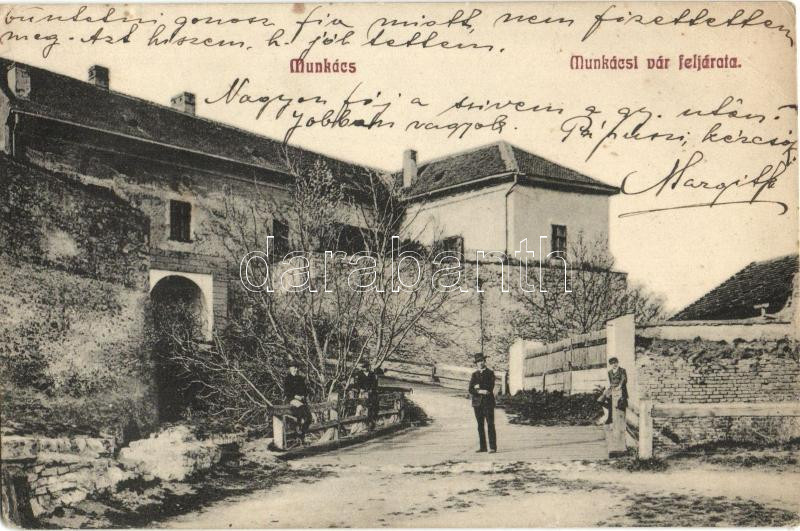 büntetni gonosz fia miatt, nem fizettettem
meg. Azt hiszem, h. jól tettem.
Munkács
Munkácsi vár feljárata.
Nagyon fáj a szivem a gy. után.
Jobban vagyok. Pá puszi, kézcsók
Margith
darabanth